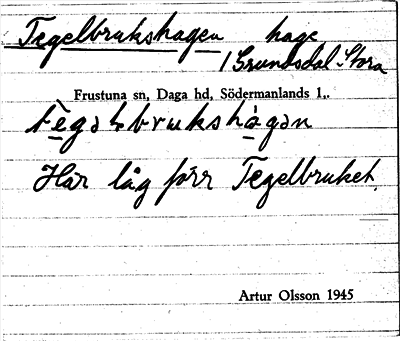 Tegelbrukshagen hage
/ Grundsdal Stora
Frustuna sn, Daga hd, Södermanlands l.
tègəlbrukshàgən
Här låg förr Tegelbruket.
Artur Olsson 1945